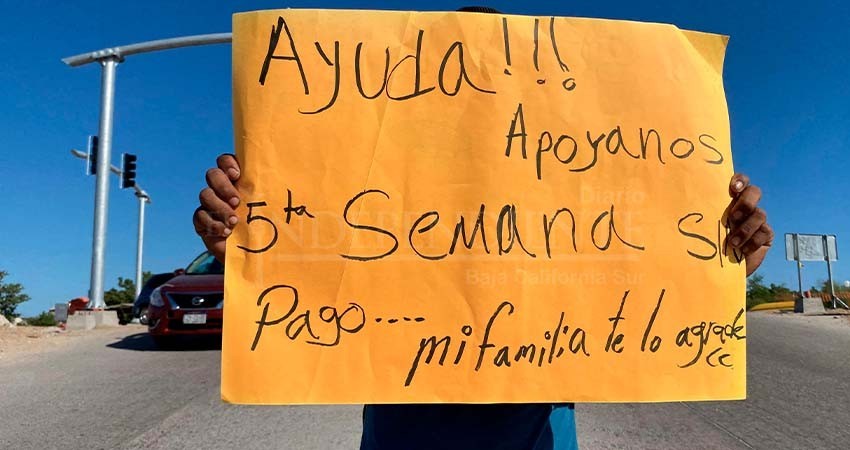 Ayuda!!!
Apoyanos
5ta Semana SIN
Pago.... mi familia te lo agrade
cc
Diario
INDEPENDIENTE
Baja California Sur